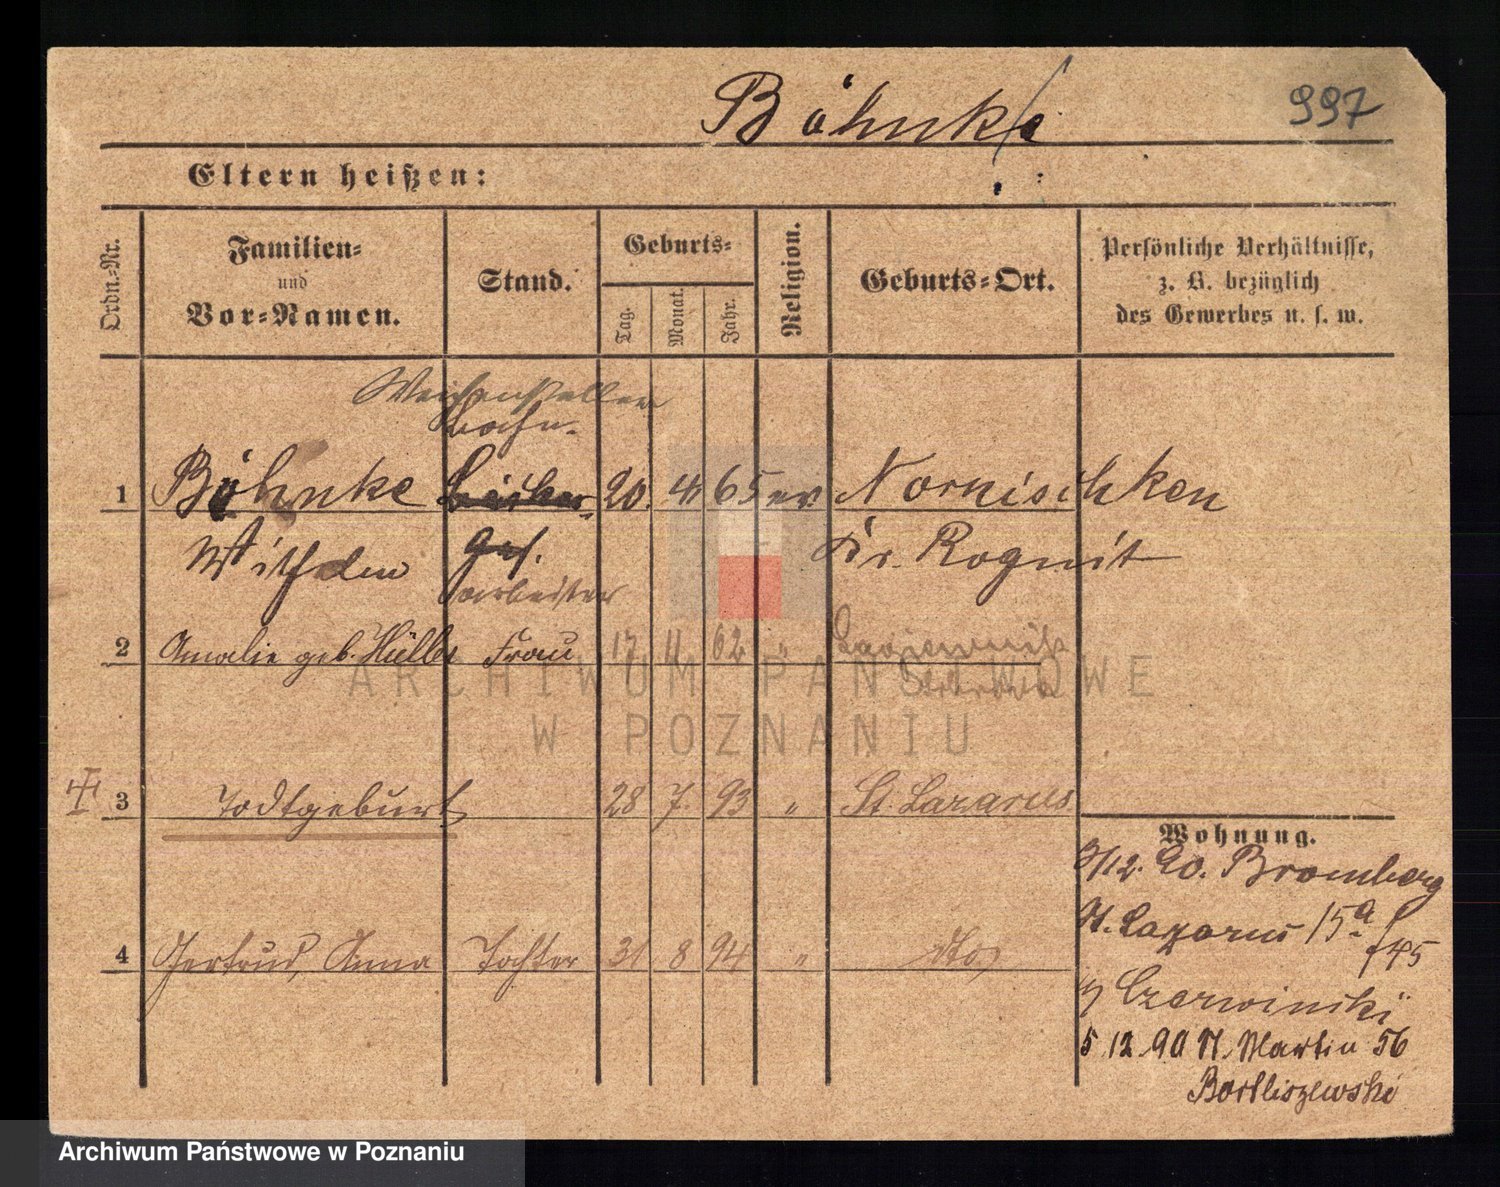 Böhnke
997
Eltern heißen:
Ordn.-Nr.
Familien-
und
Vor-Namen.
Stand.
Geburts-
Tag.
Monat.
Jahr.
Religion.
Geburts-Ort.
Persönliche Verhältnisse,
z. B. bezüglich
des Gewerbes u. s. w.
Weichensteller
1 Böhnke 20. 4 65 ev. Nornischken
Wilhelm Kr. Ragnit
arbeiter
2 Amalie geb. Hüller Frau 17 11 62 "
3 Todtgeburt 28 7. 93 " St. Lazarus
Wohnung.
3/12. 90. Bromberg
St. Lazarus 15a
f 45
4 Gertrud, Anna Tochter 31 8 94 " dto
Czerwinski
5 12 90 St. Martin 56
Bartliszewski
ARCHIWUM PAŃSTWOWE
W POZNANIU
Archiwum Państwowe w Poznaniu